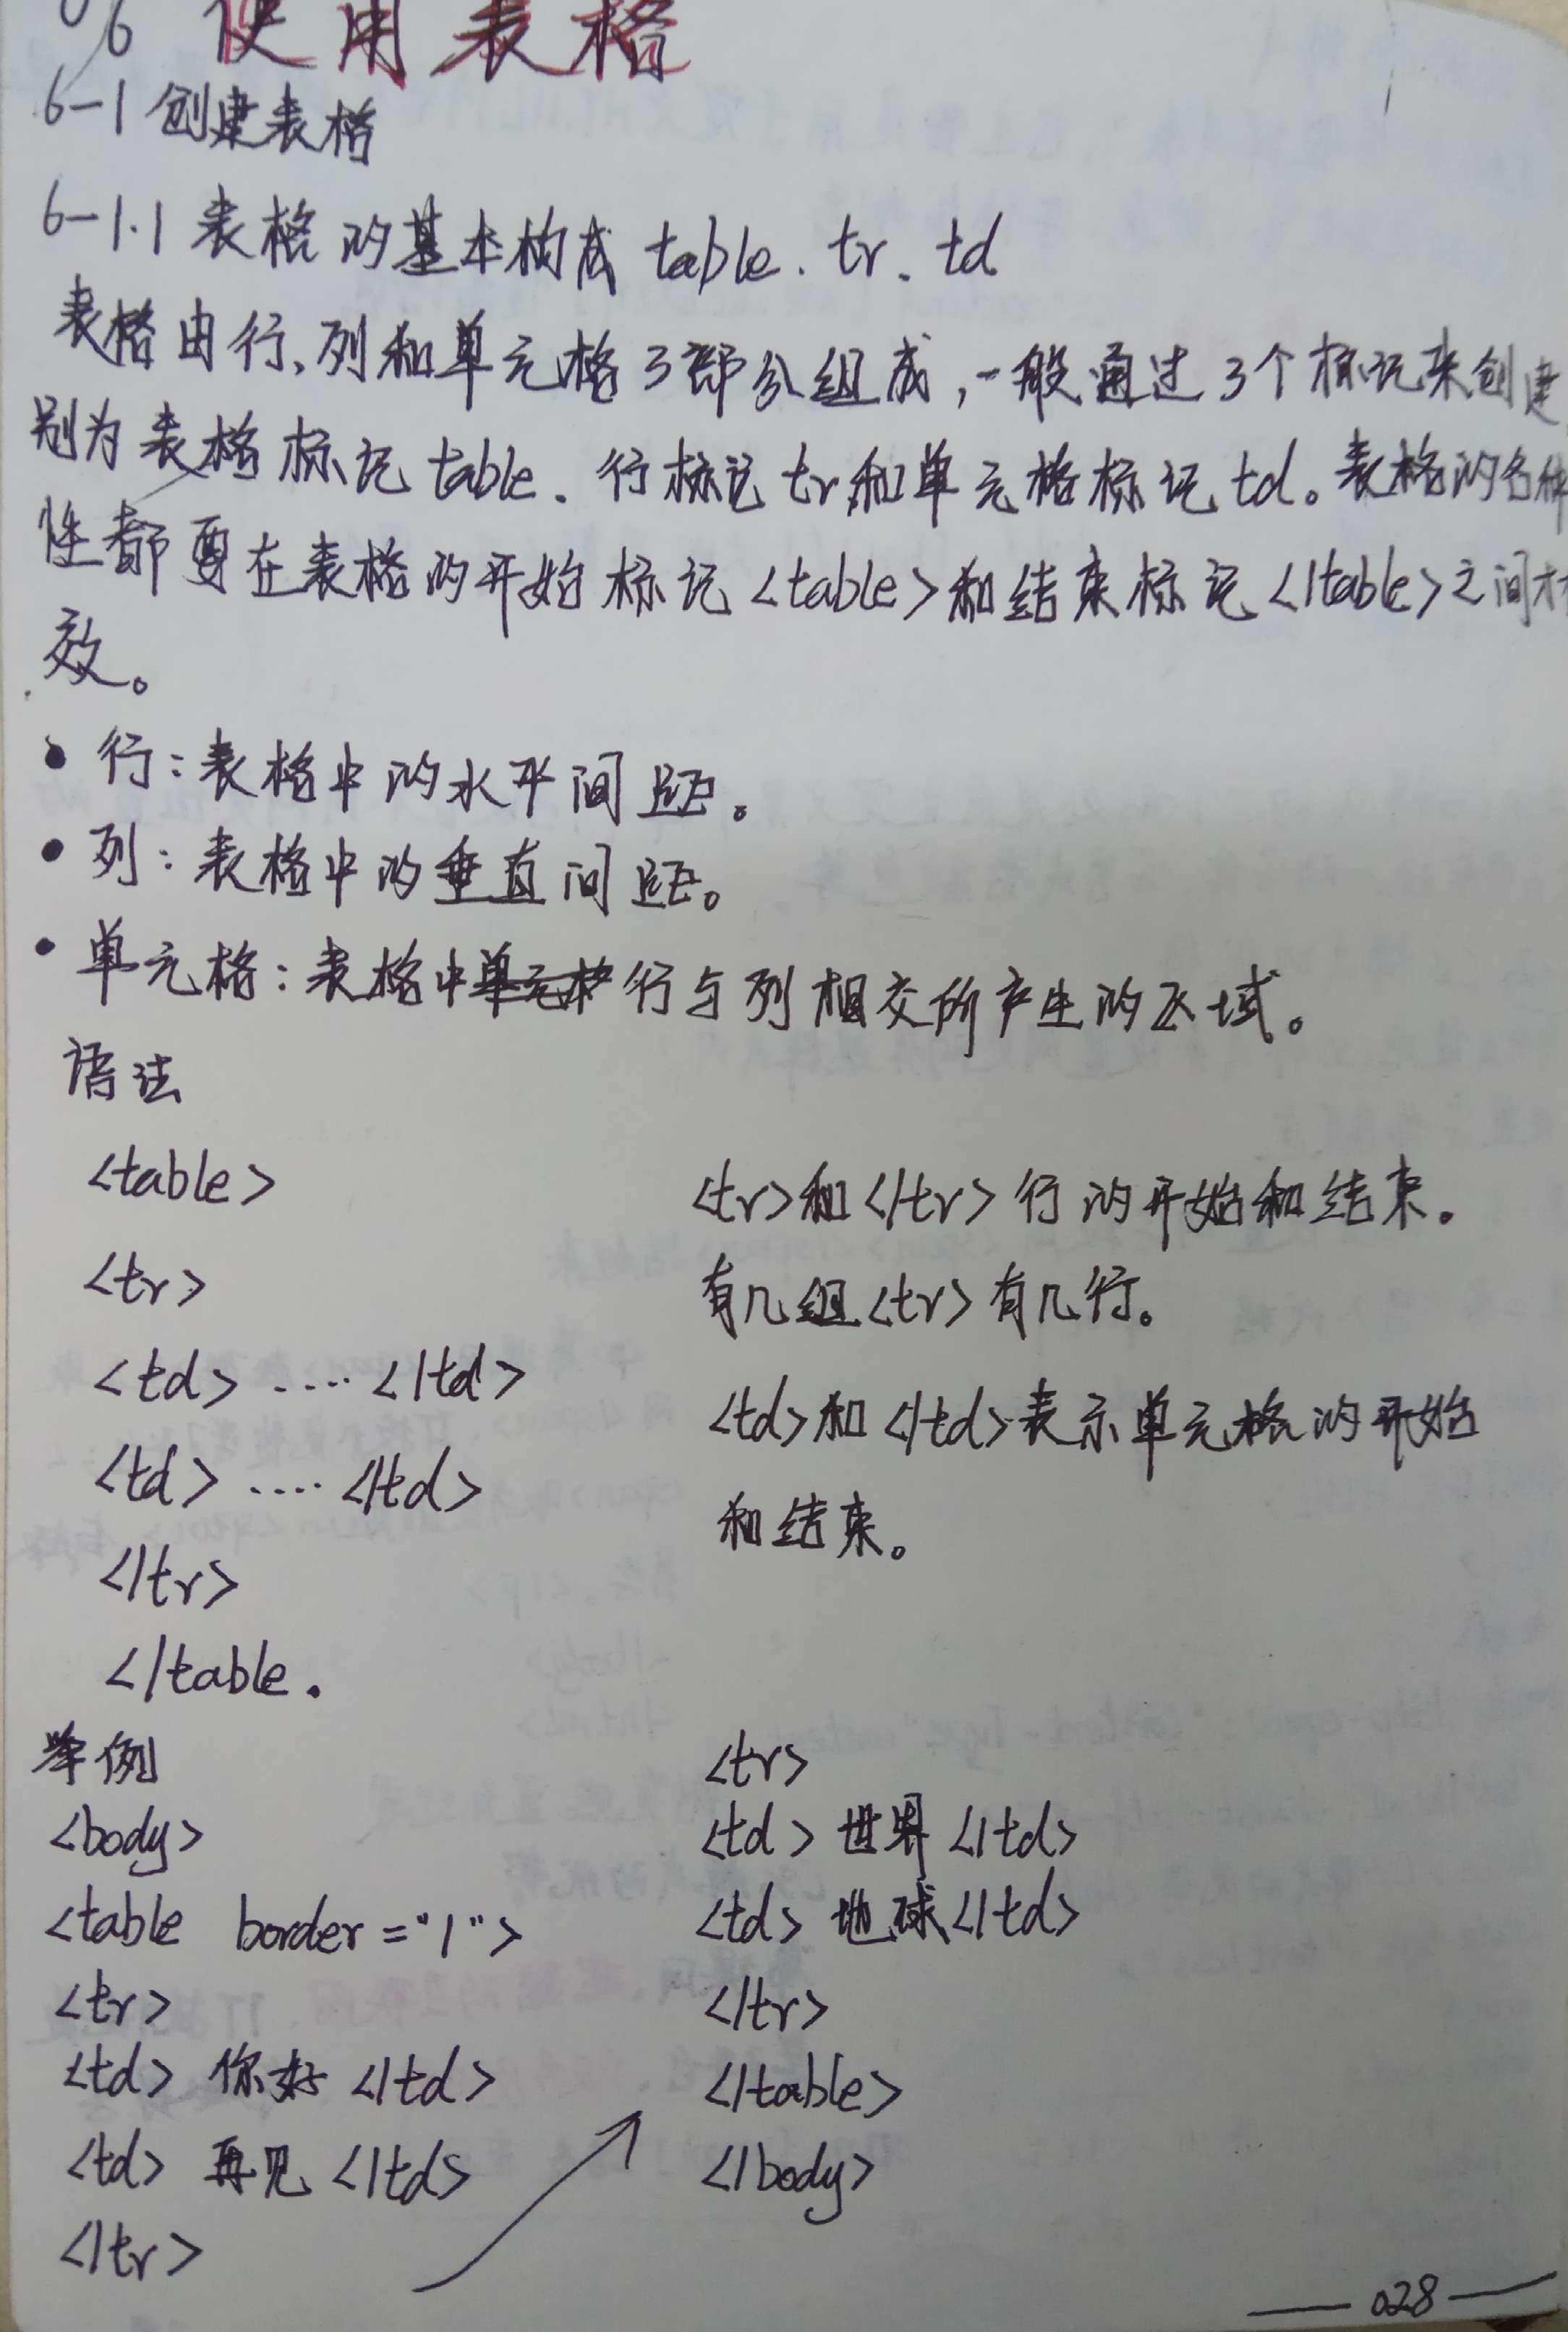 06 使用表格
6-1 创建表格
6-1.1 表格的基本构成 table、tr、td
表格由行、列和单元格3部分组成,一般通过3个标记来创建
别为表格标记table、行标记tr和单元格标记td。表格的各种
性都要在表格的开始标记<table>和结束标记</table>之间才
效。
• 行:表格中的水平间距。
• 列:表格中的垂直间距。
• 单元格:表格中单元格行与列相交所产生的区域。
语法
<table>
<tr>
<td> .... </td>
<td> .... </td>
</tr>
</table.
<tr>和</tr>行的开始和结束。
有几组<tr>有几行。
<td>和</td>表示单元格的开始
和结束。
举例
<body>
<table border="1">
<tr>
<td> 你好 </td>
<td> 再见 </td>
</tr>
<tr>
<td> 世界 </td>
<td> 地球</td>
</tr>
</table>
</body>
— 028 —